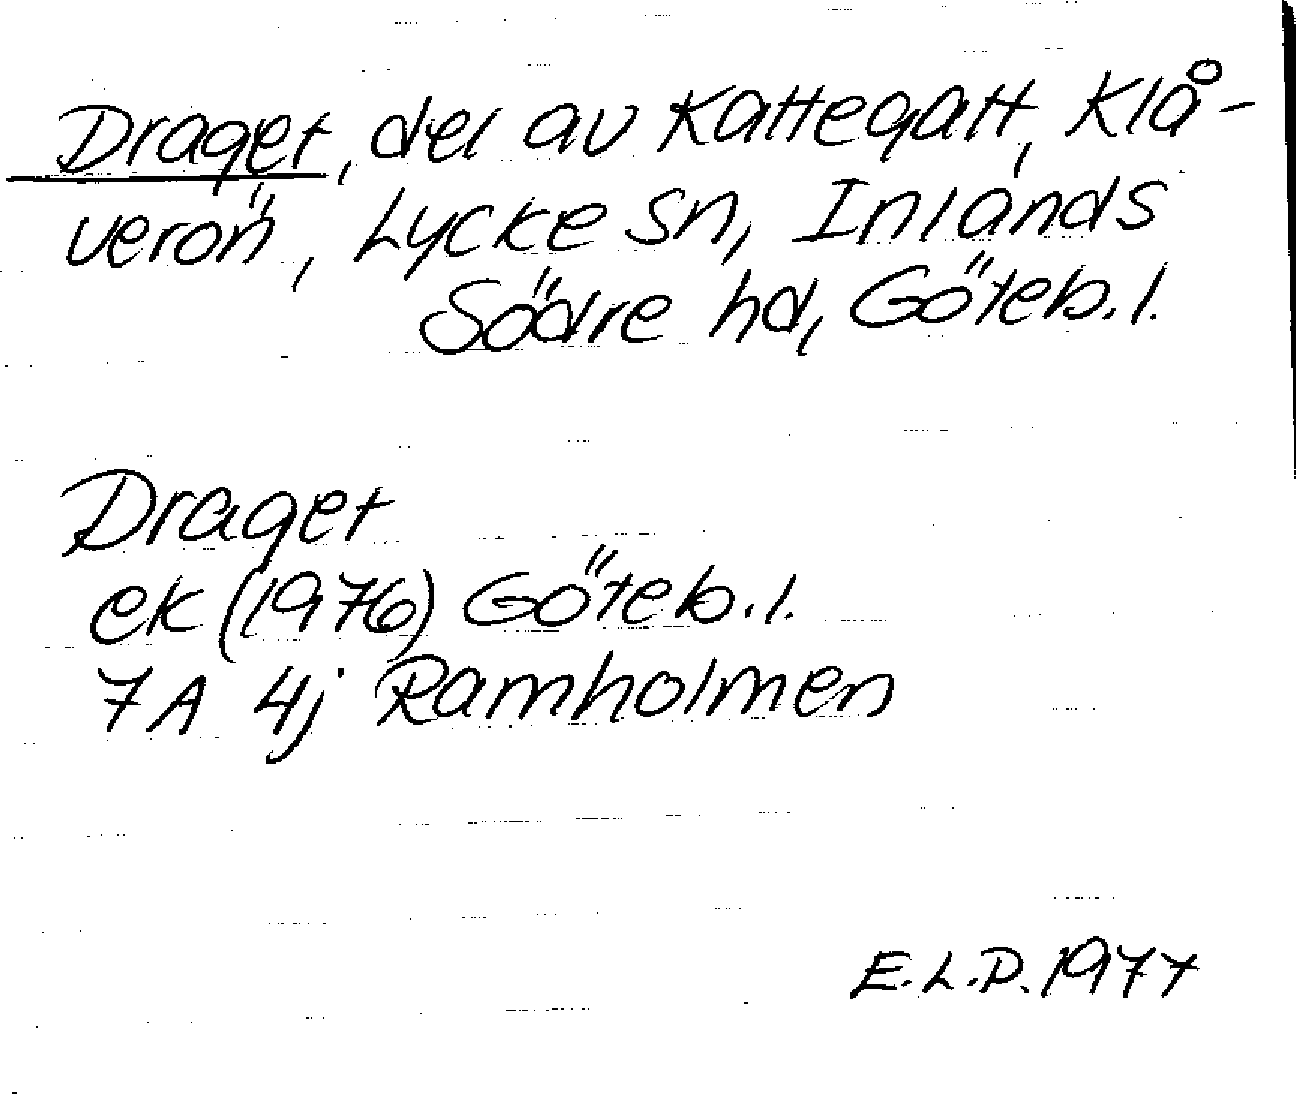 Draget, del av Kattegatt, Klå-
verön, Lycke sn, Inlands
Södre hd, Göteb. l.
Draget
ek (1976) Göteb. l.
7A 4j Ramholmen
E.L.D. 1977